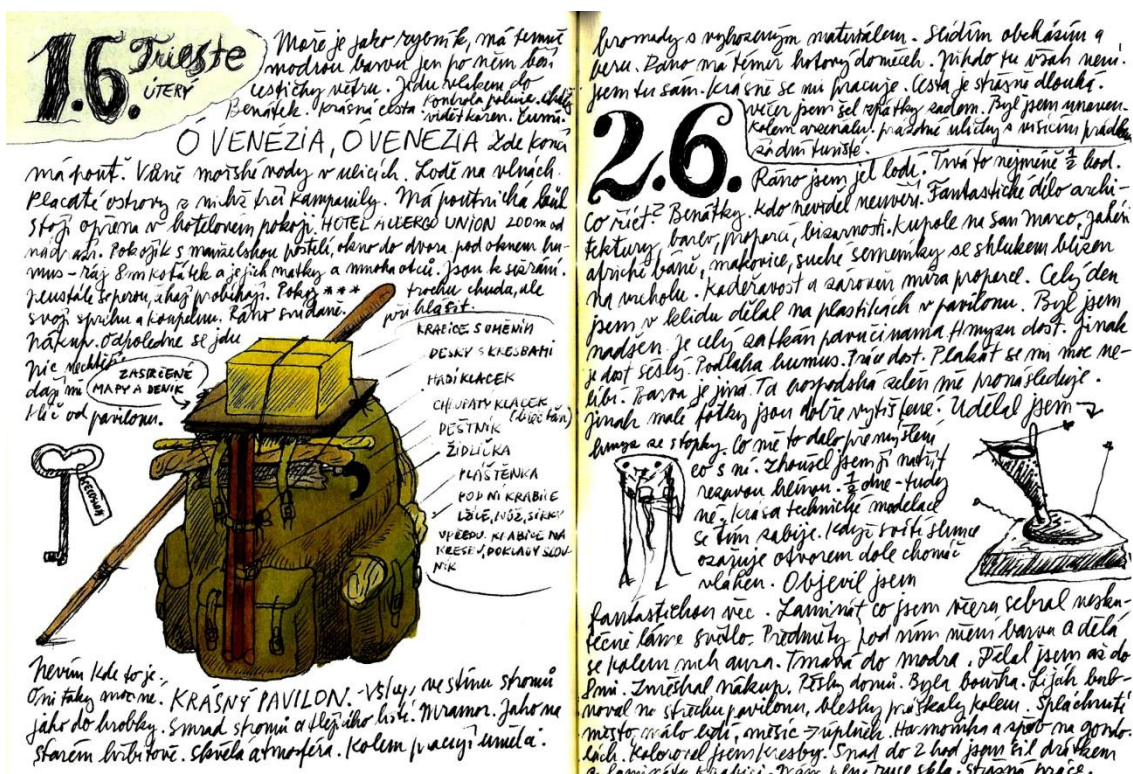 1.6. Trieste
ÚTERÝ
Moře je jako rybník, má temně
modrou barvu jen po něm běží
cestičky větru. Jedu vlakem do
Benátek. Krásná cesta. Kontrola policie. Chtěli
vidět kořen. Čuměli
Ó VENEZIA, O VENEZIA Zde končí
má pouť. Vůně mořské vody v ulicích. Lodě na vlnách.
Placaté ostrovy z nichž trčí kampanily. Má poutnická hůl
stojí opřena v hotelovém pokoji. HOTEL ALLERGO UNION 200m od
nádraží. Pokojík s manželskou postelí, okno do dvora. pod oknem hu-
mus - ráj 8mi koťátek a jejich matky a mnoha otců. Jsou k sežrání.
Neustále se perou, žhaj probíhají. Pokoj *** trochu chuda, ale
svoji sprchu a koupelnu. Ráno snídaně.
Nákup. Odpoledne se jdu přihlásit.
Nic nechtějí
dají mi
klíč od pavilonu.
ZASTRČENÉ
MAPY A DENÍK
KRABICE S OMĚNÍM
DESKY S KRESBAMI
HADÍ KLACEK
CHLUPATÝ KLACEK
DEŠTNÍK
ŽIDLIČKA
PLÁŠTĚNKA
POD NÍ KRABICE
LŽÍCE, NŮŽ, SIRKY
VPŘEDU. KRABICE NA
KRESBY, DOKLADY SLOV-
NÍK
Nevím kde to je.
Oni taky moc ne. KRÁSNÝ PAVILON. - Vstup, ve stínu stromů
jako do hrobky. Smrad stromů a tlejícího listí. Mramor. Jako na
starém hřbitově. Skvělá atmosféra. Kolem pracují umělci.
hromady s vyhozeným materiálem. Slídím obcházím a
beru. Dáno má téměř hotový domeček. Nikdo tu však není.
Jsem tu sám. Krásně se mi pracuje. Cesta je strašně dlouká.
večer jsem šel zpátky zadem. Byl jsem unaven.
Kolem arzenálu. Prázdné uličky s visícím prádlem
žádní turisté.
2.6.
Ráno jsem jel lodí. Trvá to nejméně ½ hod.
Co říct? Benátky. Kdo neviděl neuvěří. Fantastické dílo archi-
tektury, barev, proporcí, bizarností. Kupole na San Marco, jakési
ořiché báně, makovice, suché semeníky se shlukem blizen
na vrcholu. Kadeřavost a zároveň míra proporcí. Celý den
jsem v klidu dělal na plastikách v pavilonu. Byl jsem
nadšen. Je celý zatkán pavučinama Hmyzu dost. Jinak
je dost sešlý. Podlaha humus. Práce dost. Plakát se mi moc ne-
líbí. Barva je jiná. Ta hospodská zeleň mě pronásleduje.
Jinak malé fotky jsou dobře vytištěné. Udělal jsem →
hmyz se stopky. Co mě to dalo přemýšlení
co s ní. Zkoušel jsem ji natřít
rezavou hlínou. ½ dne - tudy
ne. Krása technické modelace
se tím zabije. Když svítí slunce
ozařuje otvorem dole chomáč
vláken. Objevil jsem
fantastickou věc. Laminát co jsem včera sebral nesku-
tečně láme světlo. Předměty pod ním mění barvu a dělá
se kolem nich aura. Tmavá do modra. Dělal jsem až do
8mi. Zmeškal nákup. Pěšky domů. Byla bouřka. Liják bub-
noval na střechu pavilonu, blesky práskaly kolem. Spláchnuté
město, málo lidí, měsíc → úplněk. Harmonika a zpěv na gondo-
lách. Koloroval jsem kresby. Snad do 2 hod jsem šil drátkem
z laminátu krabici. Mám plné ruce skla. Strašná práce.